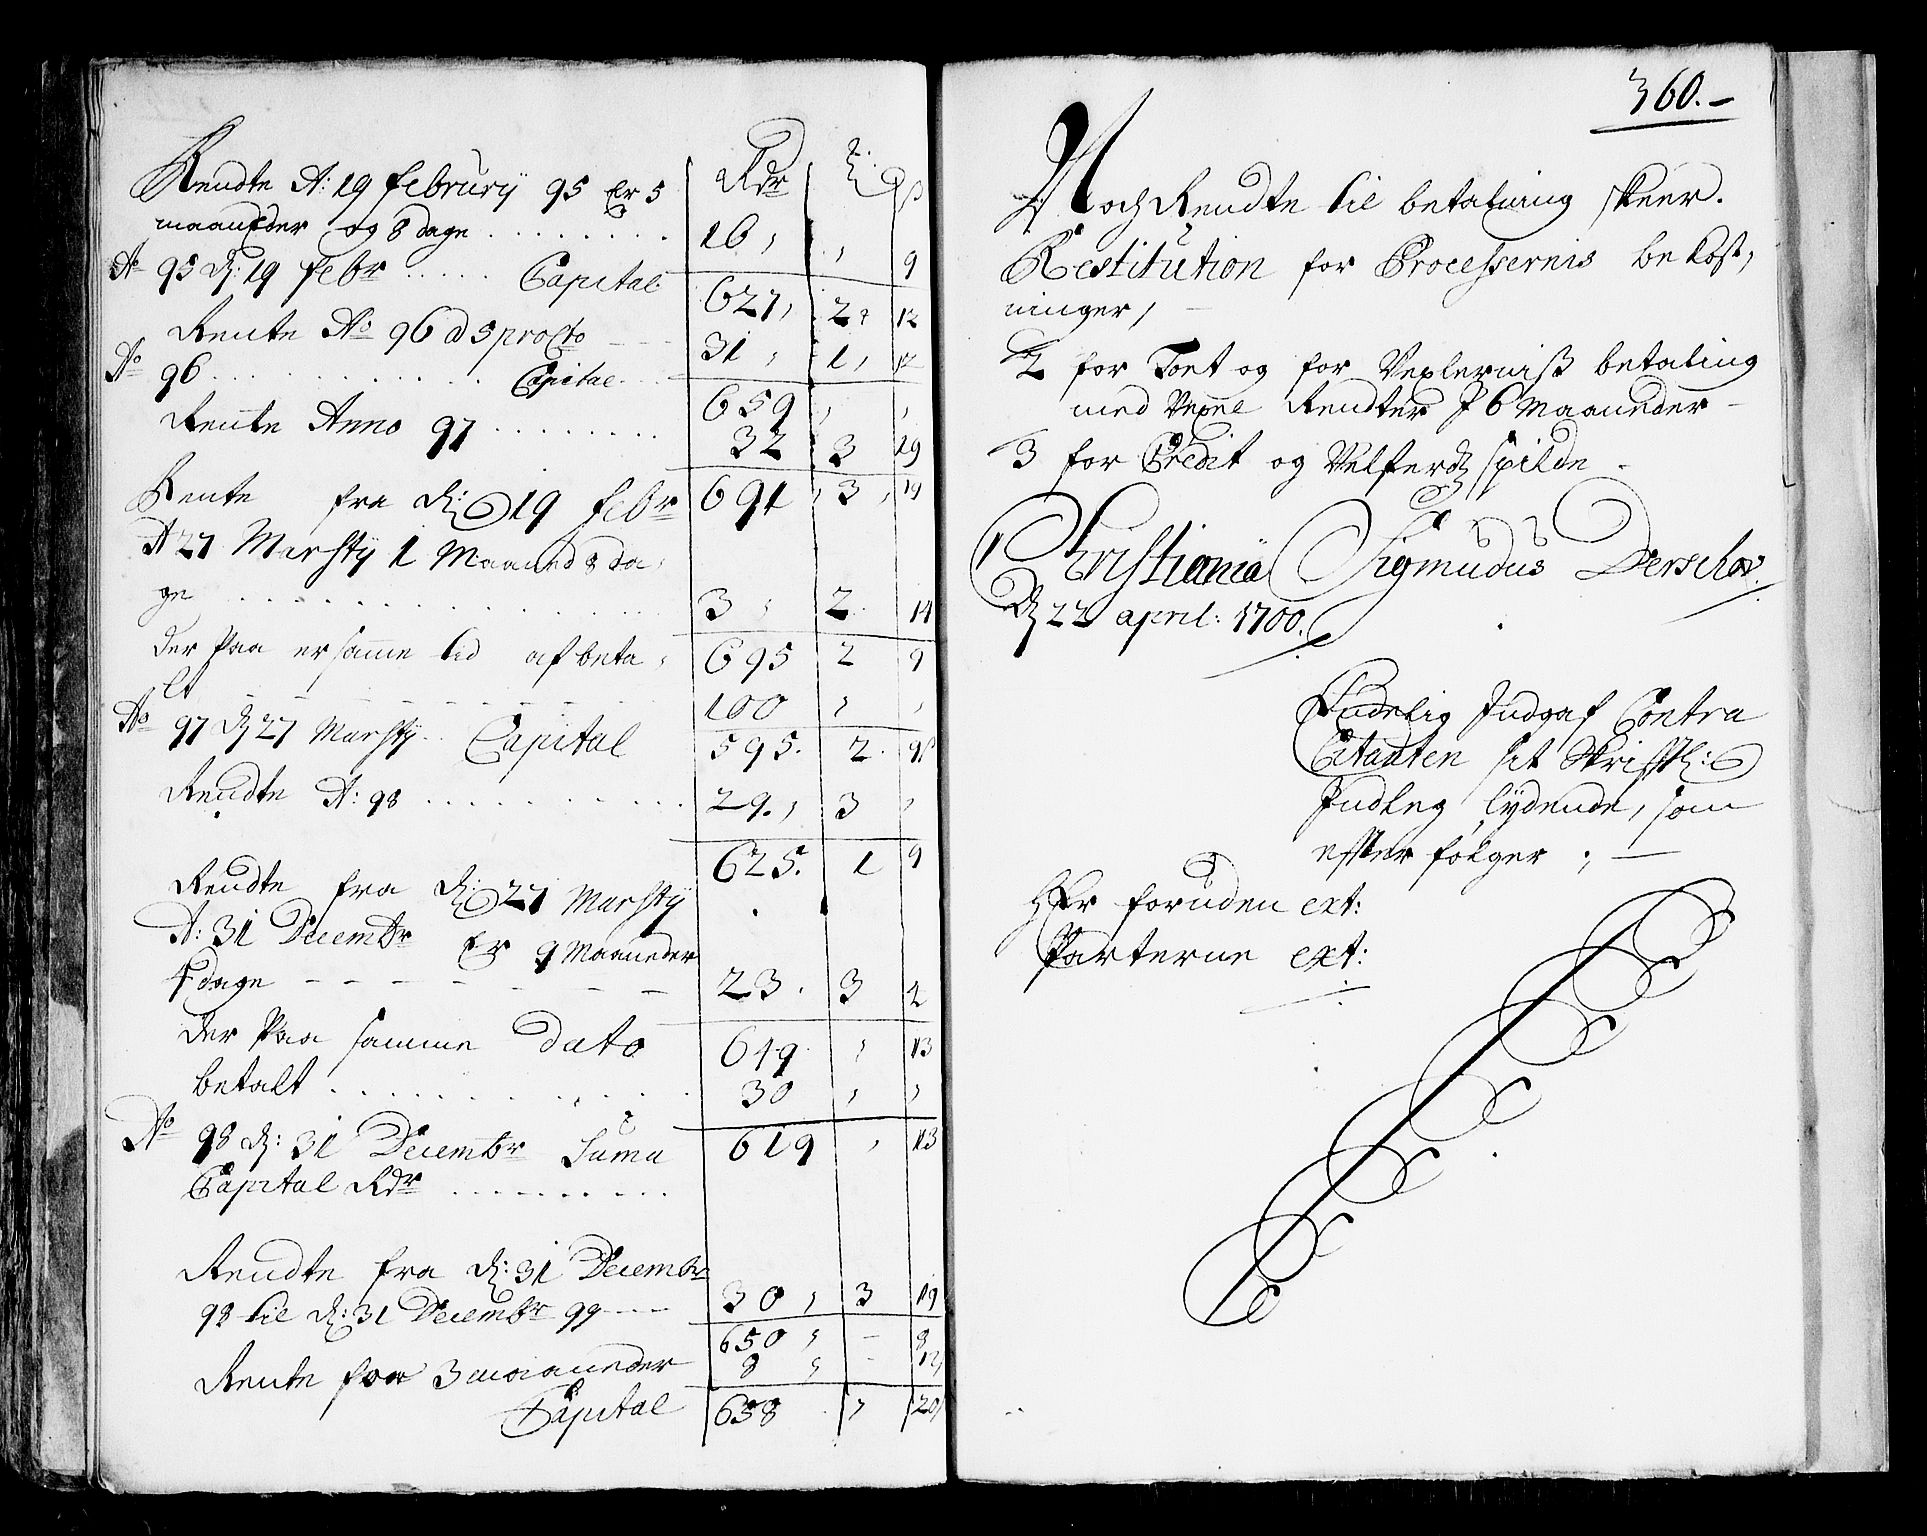 Rdr
Rendte A: 19 februrÿ 95 Er 5
maaneder og 8 dage . . . . . . . 16 , , 9
Ao 95 d: 19 febr . . . . . Capital 627, 2, 12
Rente Ao 96 a 5 procto 31, 1, 12
Ao 96 . . . . . . . . . . Capital 659 , ,
Rente Anno 97 . . . . . . . 32 3 19
691 , 3 , 19
Rente fra d: 19 febr
A 27 Marsty 1 Maaned 8 da,
ge . . . . . . . . . . . . 3 , 2 14
der Paa er samme tid af beta, 695 2 9
lt 100 , ,
Ao 97 d 27 Marsty . . Capital 595. 2. 9
Rendte A: 98 . . . . . . . . . 29., 3 ,
625. 1 9
Rendte fra d: 27 Marsty
A: 31 Decembr Er 9 Maaneder
4 dage 23. 3 2
der Paa samme dato 649 , 13
betalt . . . . . . . . . . . 30 , ,
Ao 98 d: 31 Decembr Suma 619 , 13
Capital Rdr . . . . . . . . .
Rendte fra d: 31 Decembr
98 til d: 31 Decembr 99 30, 3 19
650 , – 8
Rente for 3 maaneder 8 , – 12,
Capital 658 , 20,
360.–
Noch Rendte til betaluing skeer.
Restitution for Processernis bekost,
ninger, –
2 for Toet og for Vexlerniß betaling
med Vexel Rendter P 6 Maaneder –
3 for Credit og Velferdz spilde –
Christiania Sigmudus Derschov.
d 22 april: 1700.
Endelig Indgaf Contra
Citanten sit Skrifftl:
Indleg lÿdende, som
effter følger ; –
Her foruden ext:
Parterne ext: